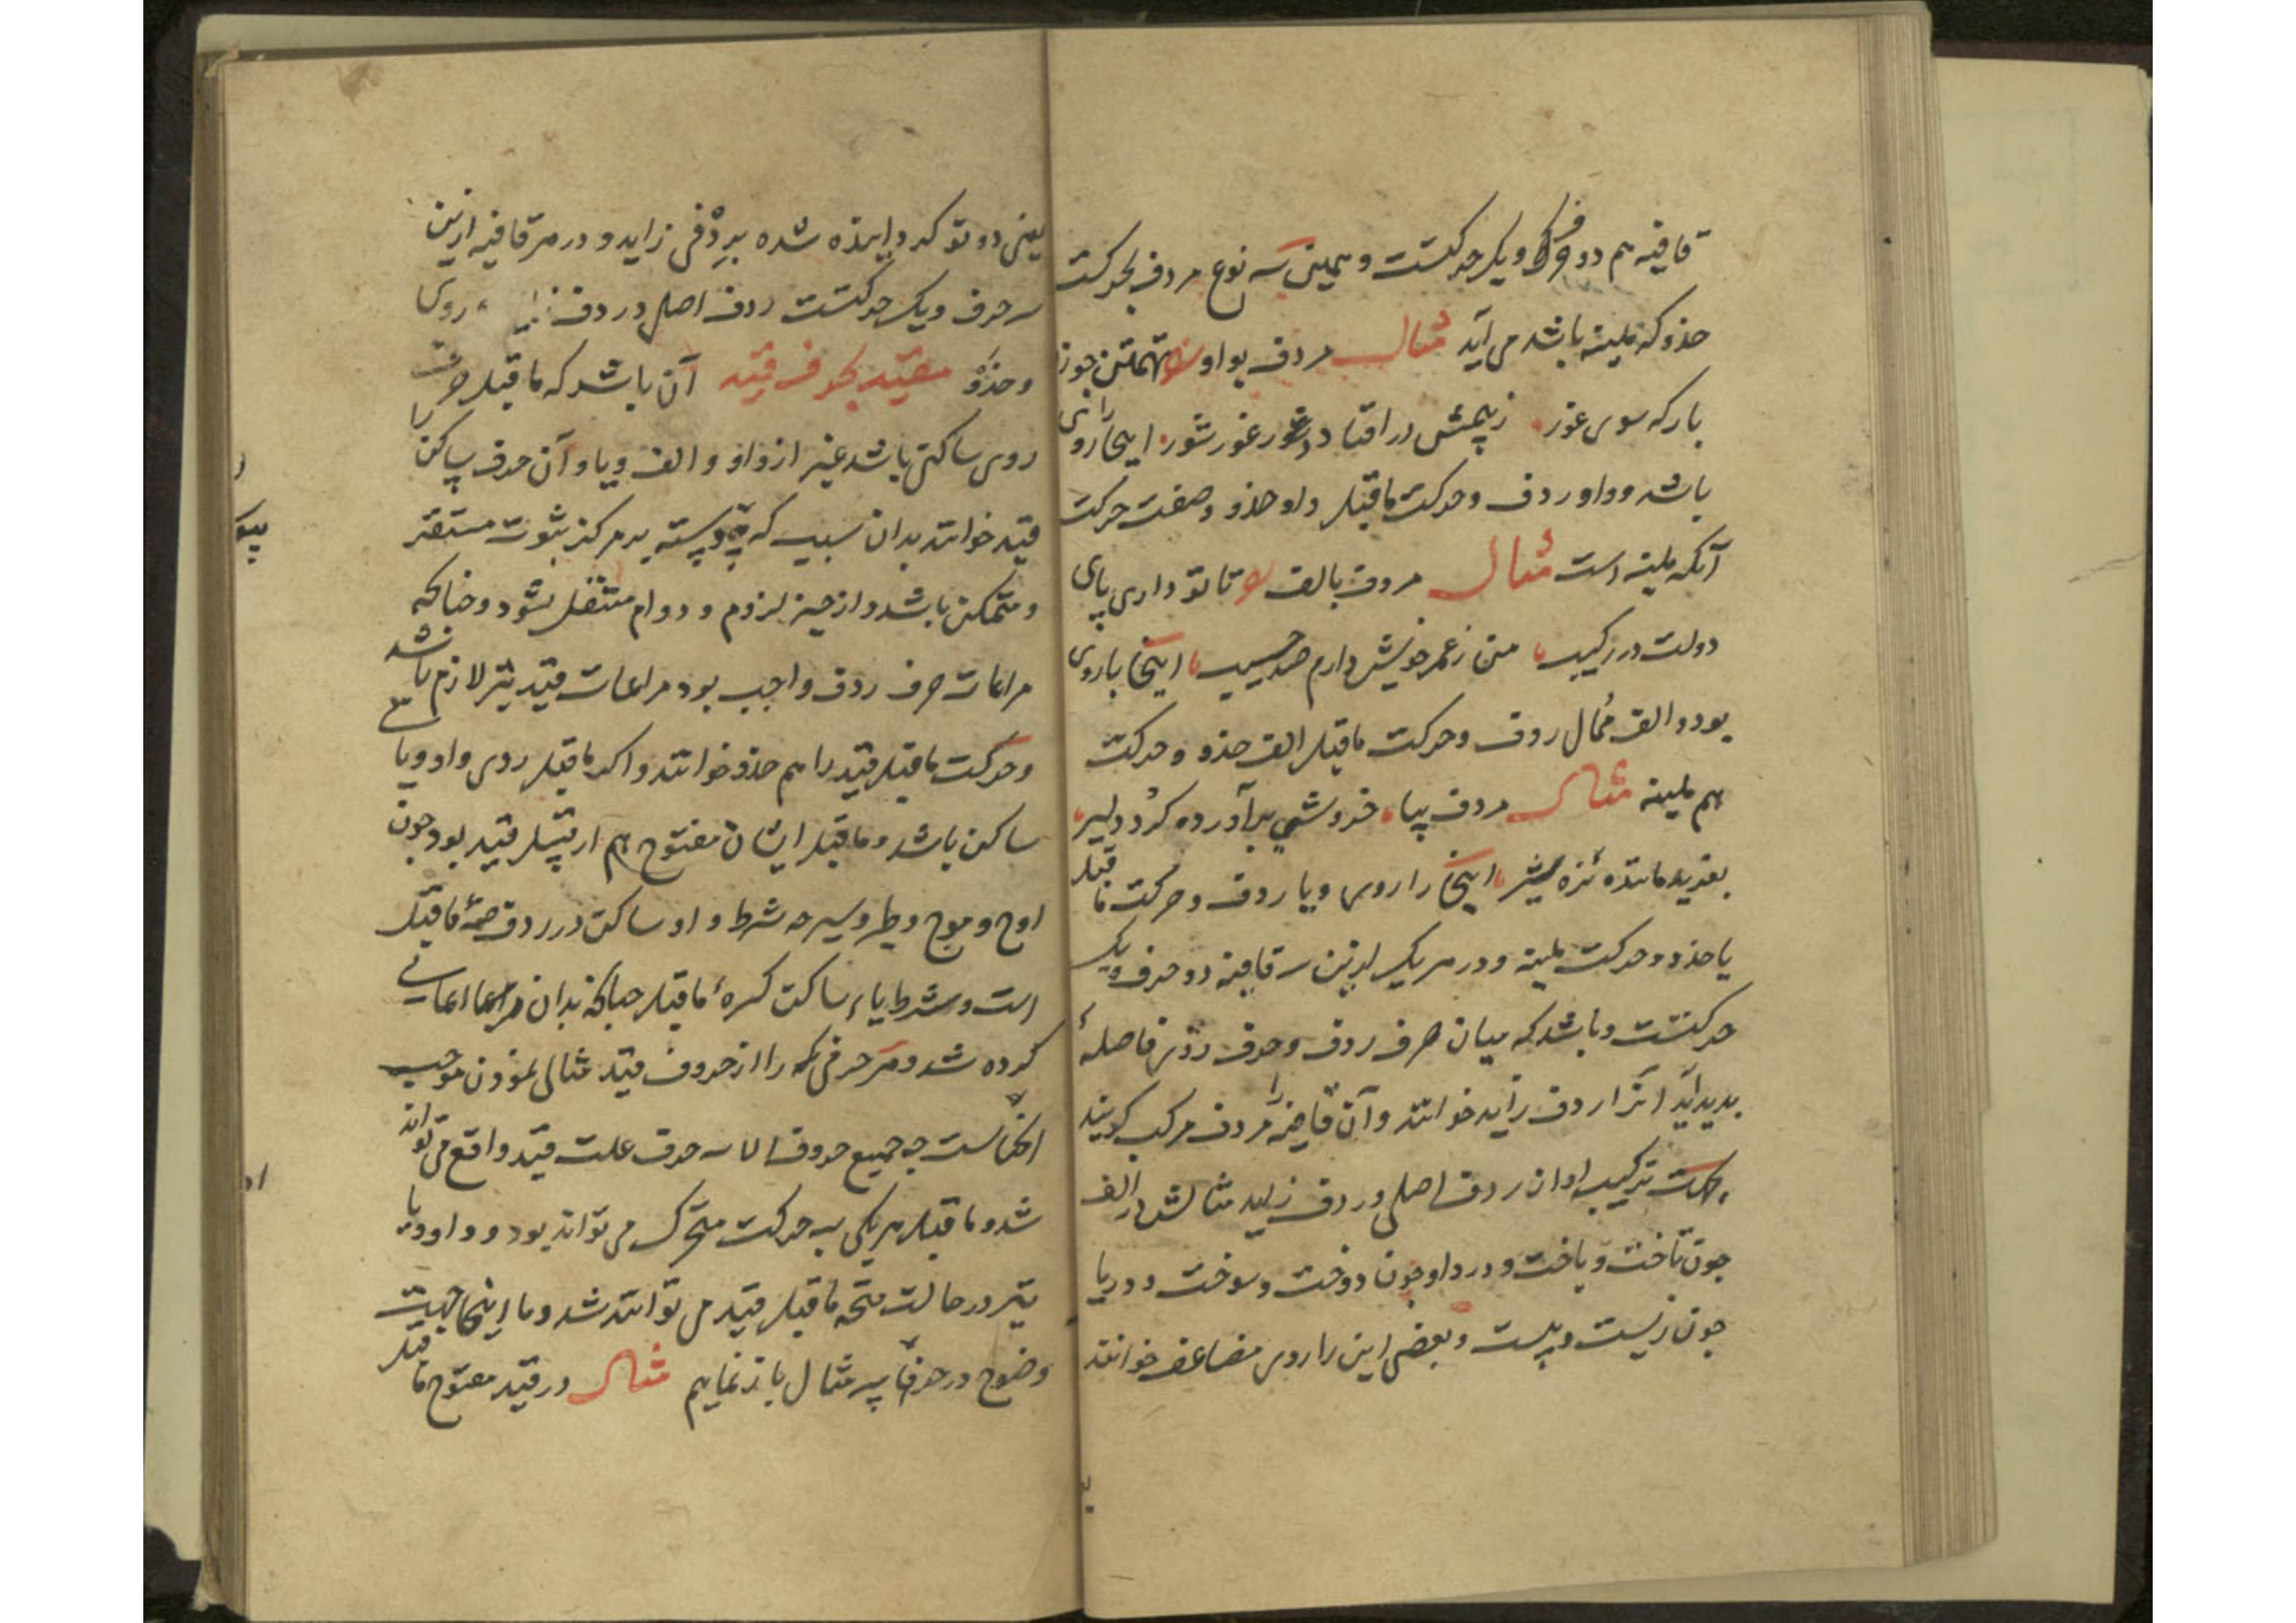 قافیه هم دو حرف و یک حرکتست و همین سه نوع مردف بحرکت
حذو که ملینه باشد می آید مثال مردف بواو تهمتن چون
بارکه سوی غور زپچمش در افتاد در غور شور اینجا را روی
باشد و واو ردف و حرکت ماقبل واو حذو و صفت حرکت
آنکه ملینه است مثال مردف بالف تا تو داری پای
دولت در رکیب من ز عمر خویش دارم صد حسیب اینجا با روی
بود و الف ممال ردف و حرکت ماقبل الف حذو و حرکت
هم ملینه مثال مردف بیا خروشی برآورده کرد دلیر
بغرید ماننده نره شیر اینجا را روی و یا ردف و حرکت ماقبل
یا حذو و حرکت ملینه و در هر یک ازین سه قافیه دو حرف و یک
حرکتست و باشد که میان حرف ردف و حرف روی فاصله
پدید آید آنرا ردف زاید خوانند و آن قافیه را مردف مرکب گویند
بجهت ترکیب او از ردف اصلی و ردف زاید مثالش در الف
چون تاخت و باخت و در واو چون دوخت و سوخت و در یا
چون زیست و بیست و بعضی این را روی مضاعف خوانند
یعنی دو تو گردانیده شده بردفی زاید و در هر قافیه ازین
سه حرف و یک حرکتست ردف اصلی و ردف زاید و روی
و حذو مقید بحرف قید آن باشد که ماقبل حرف
روی ساکنی باشد غیر از واو و الف و یا و آن حرف ساکن را
قید خوانند بدان سبب که پیوسته بر مرکز ثبوت مستقر
و متمکن باشد و از حیز لزوم و دوام منتقل نشود و چنانکه
مراعات حرف ردف واجب بود مراعات قید نیز لازم باشد
و حرکت ماقبل قید را هم حذو خوانند و اگر ماقبل روی واو و یا
ساکن باشد و ماقبل ایشان مفتوح هم از قبیل قید بود چون
اوج و موج و طیر و سیر چه شرط واو ساکن در ردف ضمهٔ ماقبل
است و شرط یاء ساکن کسرهٔ ماقبل چنانکه بدان
کرده شد و هر حرفی را از حروف قید مثالی نمودن موجب
است چه جمیع حروف الا سه حرف علت قید واقع می تواند
شد و ماقبل هر یکی به حرکت متحرک می تواند بود و واو و یا
نیز در حالت فتحه ماقبل قید می توانند شد و ما اینجا جهت
وضوح در حرف سه مثال باز نماییم مثال در قید مفتوح ماقبل